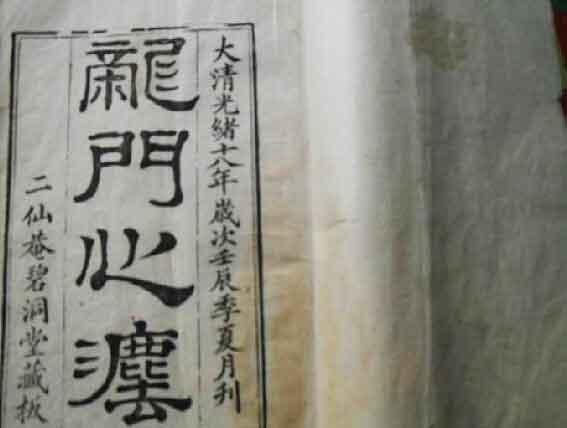 大清光緒十八年歲次壬辰季夏月刊
龍門心灋
二仙菴碧洞堂藏板